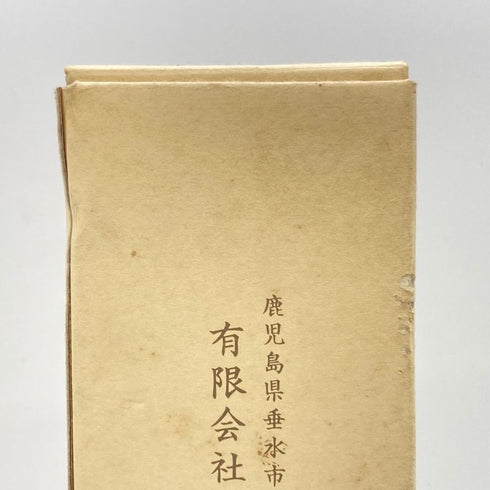 鹿児島県垂水市
有限会社